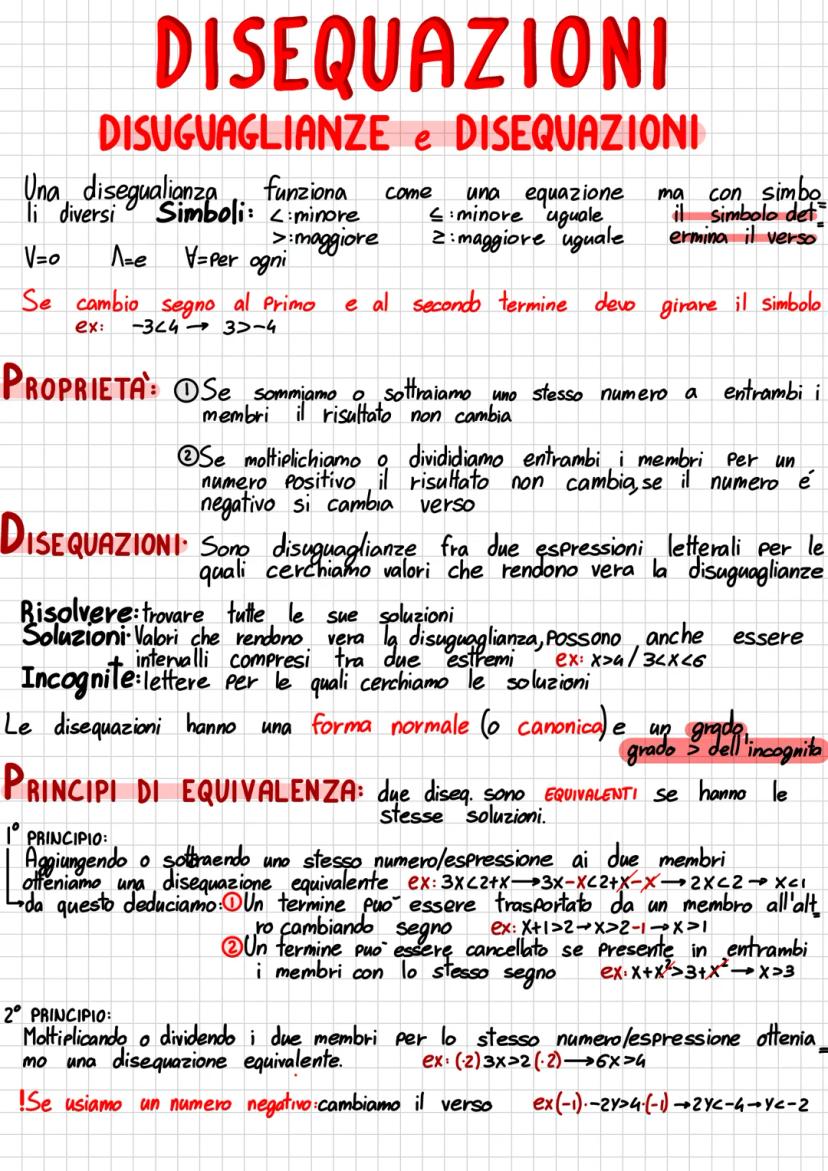 DISEQUAZIONI
DISUGUAGLIANZE e DISEQUAZIONI
Una disegualianza funziona come una equazione ma con simbo=
li diversi Simboli: <:minore ≤:minore uguale il simbolo det=
>:maggiore ≥:maggiore uguale ermina il verso
V=o Λ=e ∀=per ogni
Se cambio segno al primo e al secondo termine devo girare il simbolo
ex: -3<4 → 3>-4
PROPRIETÀ: ①Se sommiamo o sottraiamo uno stesso numero a entrambi i
membri il risultato non cambia
②Se moltiplichiamo o divididiamo entrambi i membri per un
numero positivo il risultato non cambia, se il numero é
negativo si cambia verso
DISEQUAZIONI: Sono disuguaglianze fra due espressioni letterali per le
quali cerchiamo valori che rendono vera la disuguaglianze
Risolvere: trovare tutte le sue soluzioni
Soluzioni: Valori che rendono vera la disuguaglianza, possono anche essere
+ intervalli compresi tra due estremi ex: x>4 / 3<x<6
Incognite: lettere per le quali cerchiamo le soluzioni
Le disequazioni hanno una forma normale (o canonica) e un grado
grado > dell'incognita
PRINCIPI DI EQUIVALENZA: due diseq. sono EQUIVALENTI se hanno le
stesse soluzioni.
1° PRINCIPIO:
Aggiungendo o sottraendo uno stesso numero/espressione ai due membri
otteniamo una disequazione equivalente ex: 3x<2+x→3x-x<2+x-x→2x<2→x<1
→da questo deduciamo: ①Un termine puo' essere trasportato da un membro all'alt=
ro cambiando segno ex: x+1>2→x>2-1→x>1
②Un termine puo' essere cancellato se presente in entrambi
i membri con lo stesso segno ex: x+x²>3+x²→x>3
2° PRINCIPIO:
Moltiplicando o dividendo i due membri per lo stesso numero/espressione ottenia=
mo una disequazione equivalente. ex: (·2)3x>2(·2)→6x>4
!Se usiamo un numero negativo: cambiamo il verso ex(-1)·-2y>4·(-1)→2y<-4→y<-2